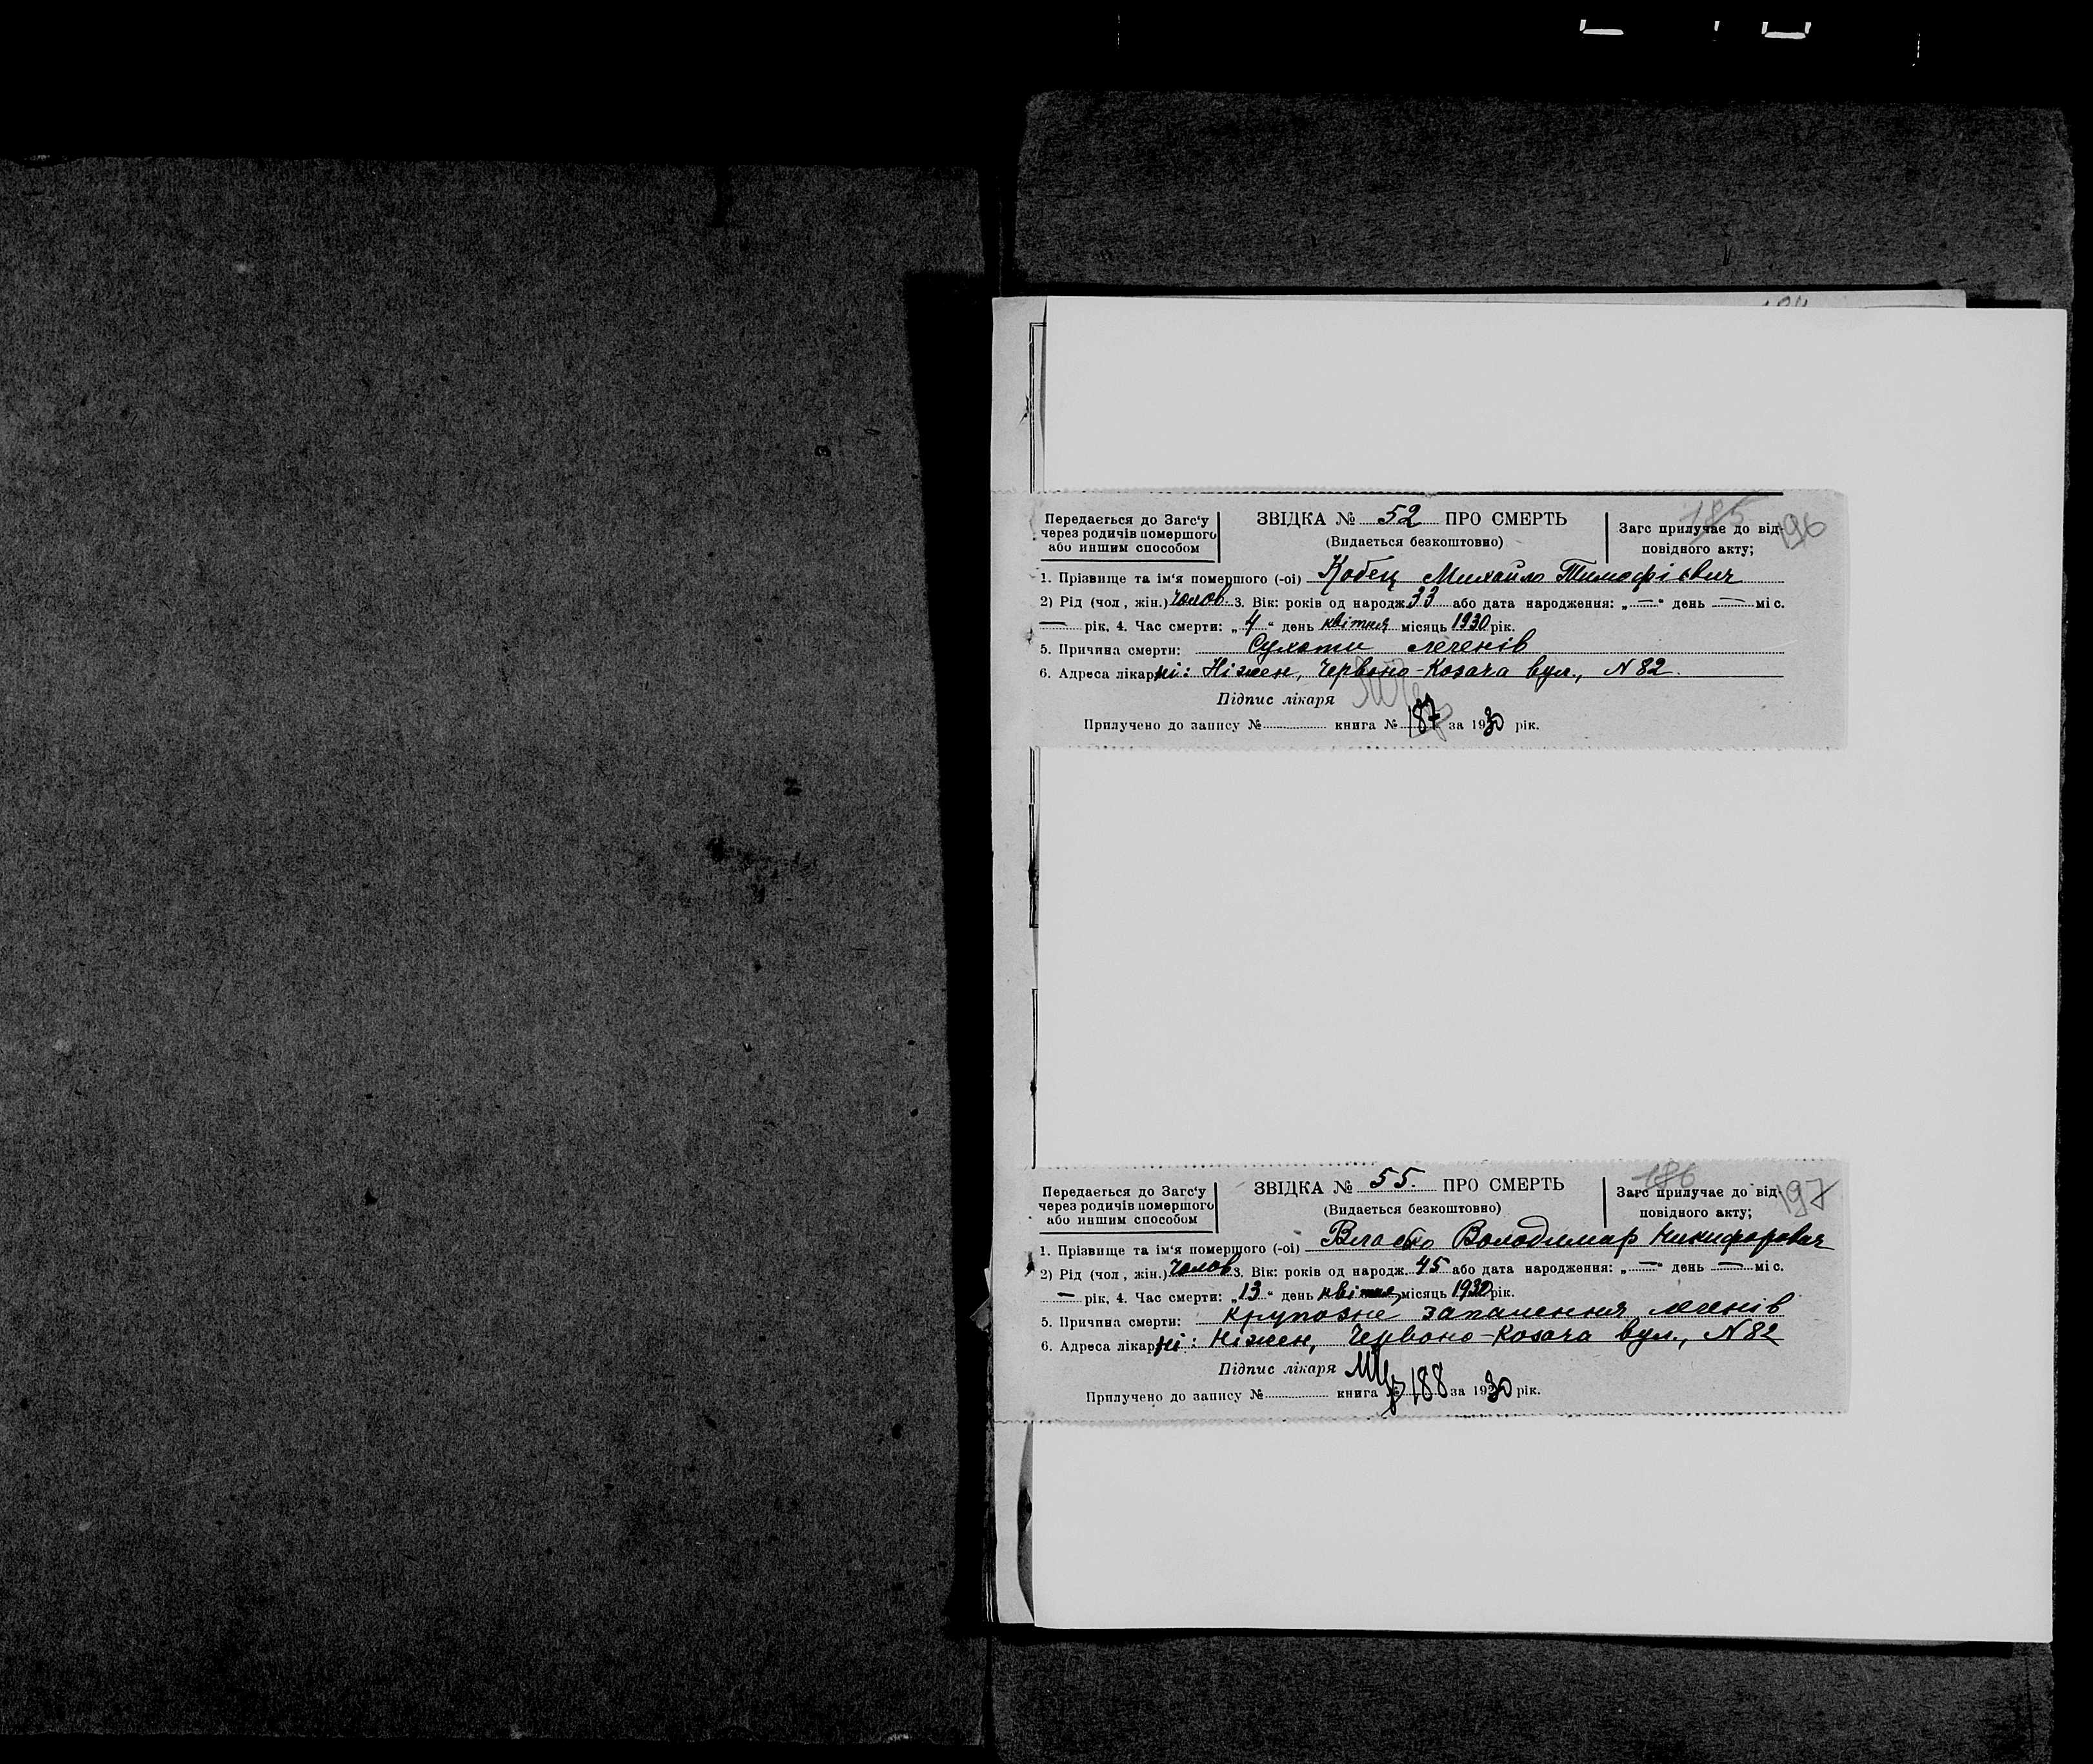 185
196
Передається до Загс'у
через родичів помершого
або иншим способом
ЗВІДКА № 52 ПРО СМЕРТЬ
(Видається безкоштовно)
Загс прилучає до від-
повідного акту;
1. Прізвище та ім'я помершого (-ої) Кобец Михайло Тимофієвич
2) Рід (чол, жін.) Чолов. 3. Вік: років од народж. 33 або дата народження: „—“ день — міс.
— рік, 4. Час смерти: „4“ день квітня місяць 1930 рік.
5. Причина смерти: Сухоти легенів
6. Адреса лікарні: Ніжен, Червоно-Козача вул., N 82.
Підпис лікаря
Прилучено до запису № книга № 187 за 1930 рік.
186
197
Передається до Загс'у
через родичів помершого
або иншим способом
ЗВІДКА № 55. ПРО СМЕРТЬ
(Видається безкоштовно)
Загс прилучає до від-
повідного акту;
1. Прізвище та ім'я помершого (-ої) Володимар Никифорович
2) Рід (чол, жін.) Чолов. 3. Вік: років од народж. 45 або дата народження: „—“ день — міс.
— рік, 4. Час смерти: „13“ день квітня, місяць 1930 рік.
5. Причина смерти: крупозне запаления легенів
6. Адреса лікарні: Ніжен, Червоно-Козача вул., N 82
Підпис лікаря
Прилучено до запису № книга № 188 за 1930 рік.